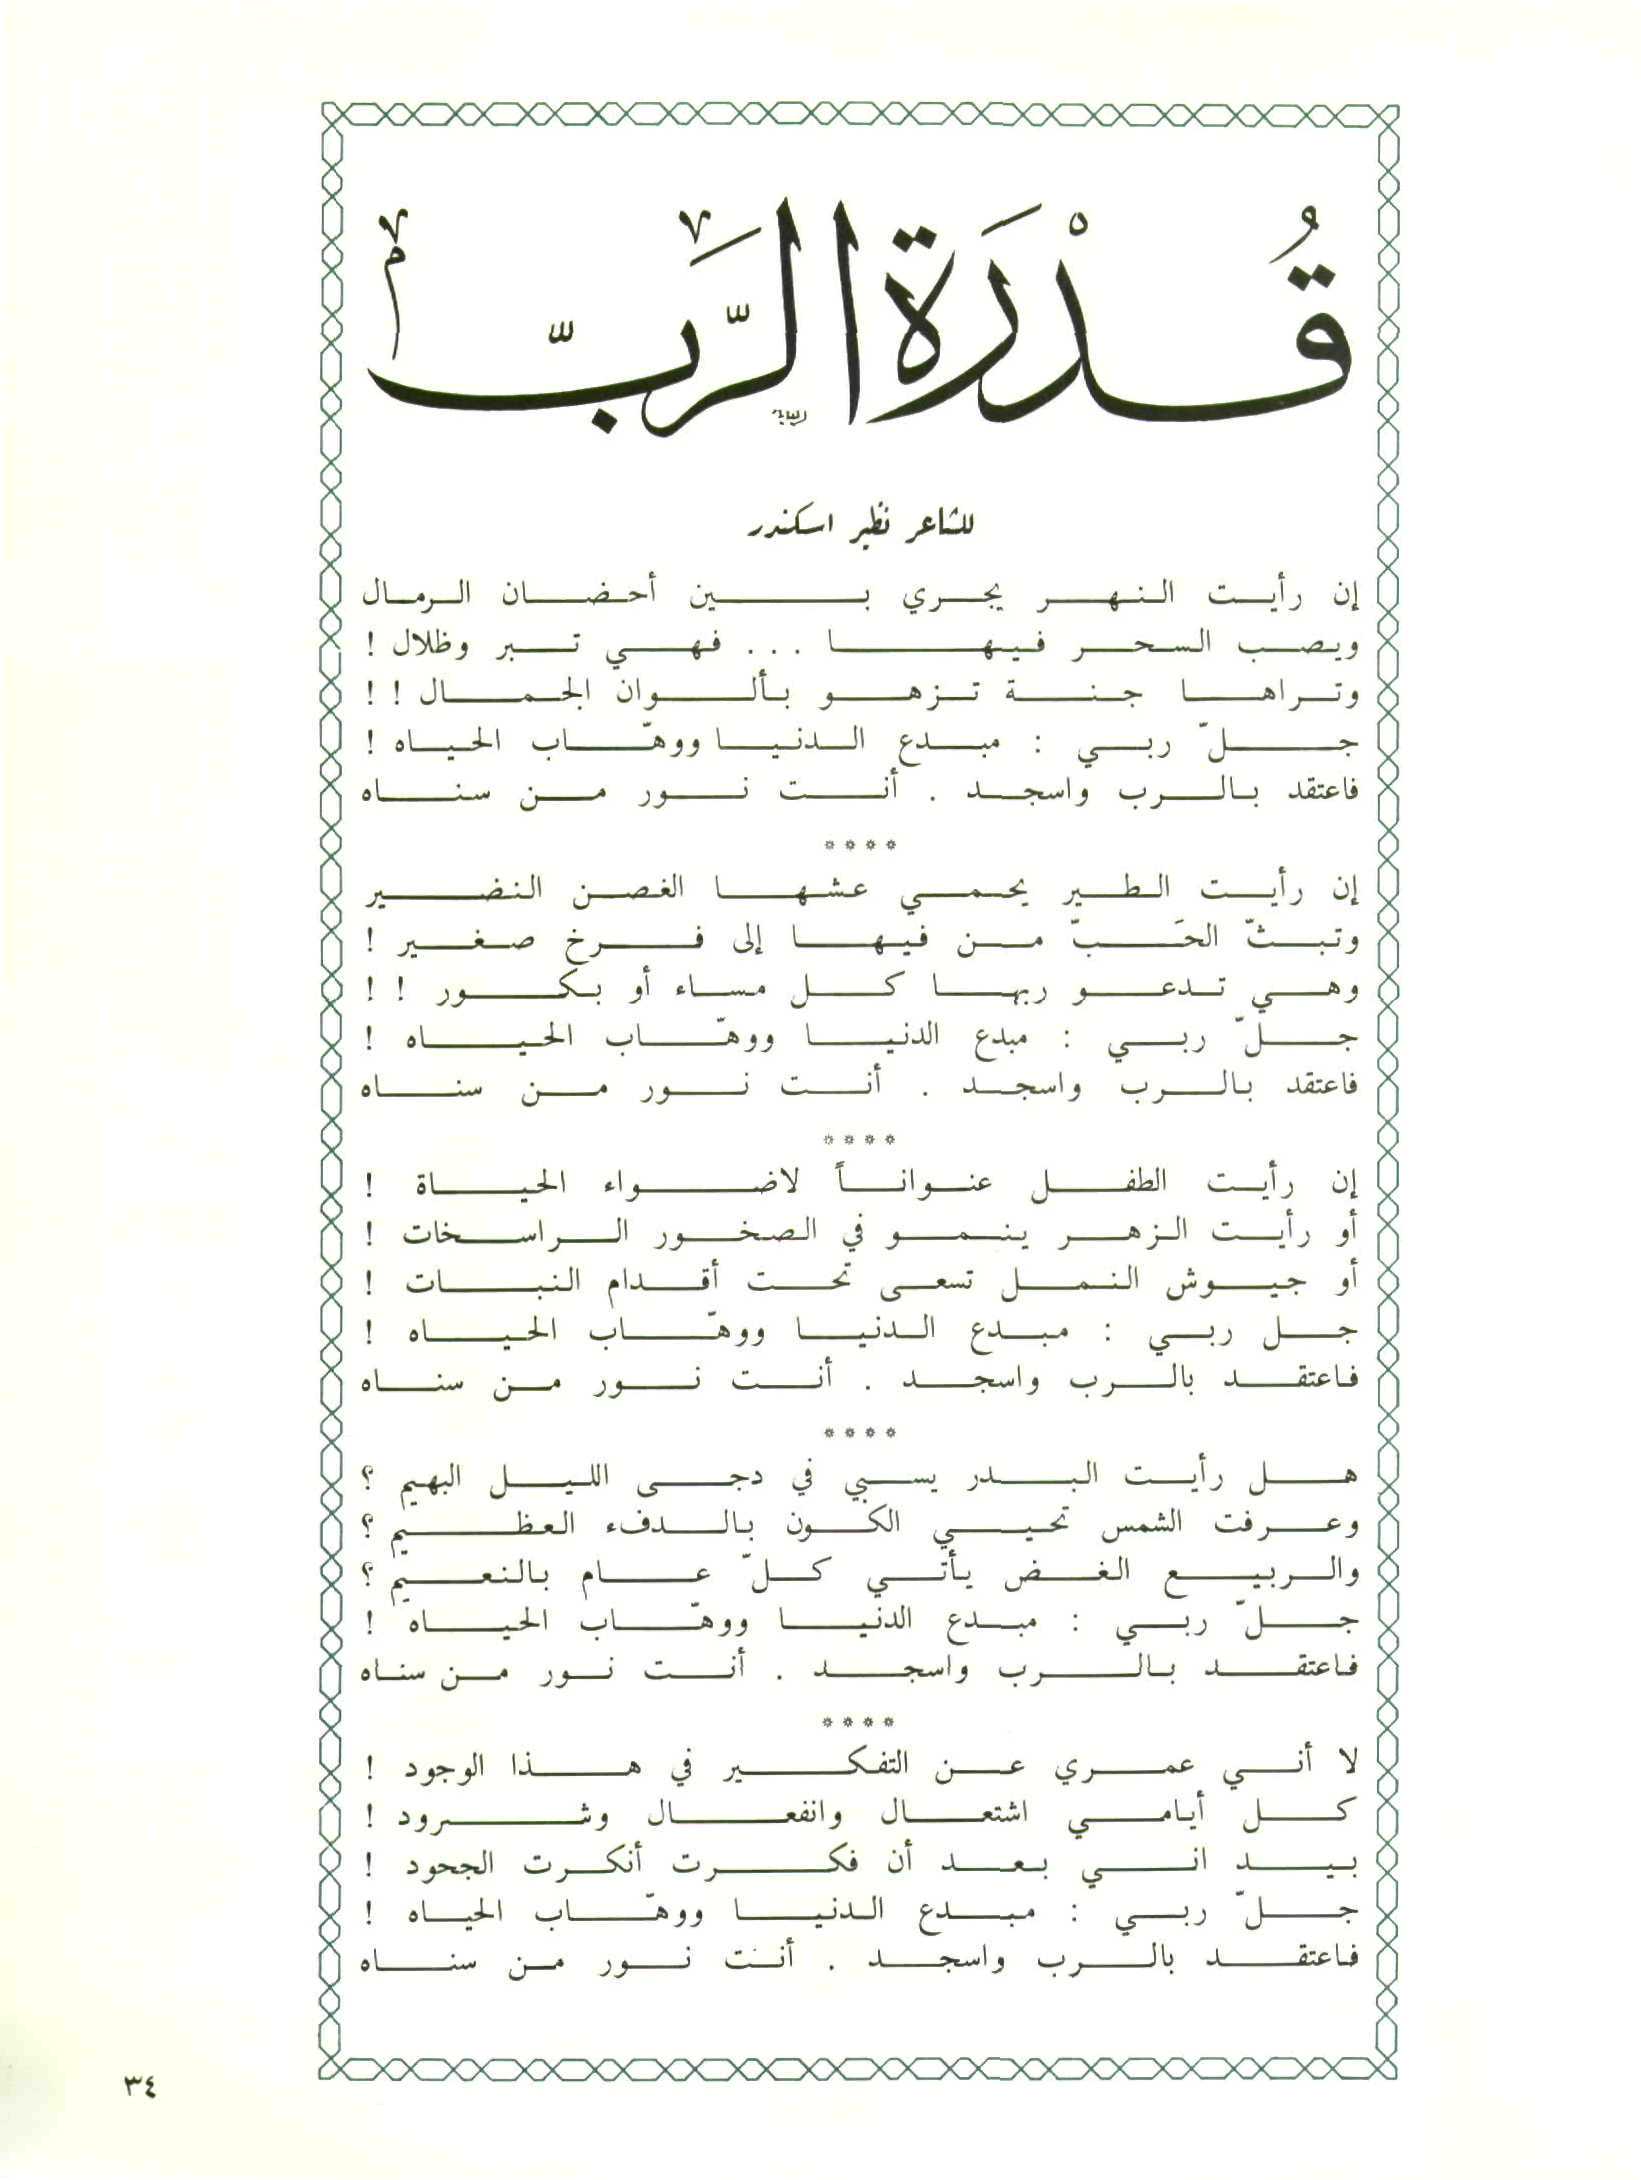 قُدْرَة الرَّبّ
للشاعر نظير اسكندر
إن رأيت النهر يجري بين أحضان الرمال
ويصب السحر فيها ... فهي تبر وظلال !
وتراها جنة تزهو بألوان الجمال ! !
جلّ ربي : مبدع الدنيا ووهّاب الحياه !
فاعتقد بالرب واسجد . أنت نور من سناه
****
إن رأيت الطير يحمي عشها الغصن النضير
وتبثّ الحَبّ من فيها إلى فرخ صغير !
وهي تدعو ربها كل مساء أو بكور ! !
جلّ ربي : مبدع الدنيا ووهّاب الحياه !
فاعتقد بالرب واسجد . أنت نور من سناه
****
إن رأيت الطفل عنواناً لاضواء الحياة !
أو رأيت الزهر ينمو في الصخور الراسخات !
أو جيوش النمل تسعى تحت أقدام النبات !
جل ربي : مبدع الدنيا ووهّاب الحياه !
فاعتقد بالرب واسجد . أنت نور من سناه
****
هل رأيت البدر يسبي في دجى الليل البهيم ؟
وعرفت الشمس تحيي الكون بالدفء العظيم ؟
والربيع الغض يأتي كلّ عام بالنعيم ؟
جلّ ربي : مبدع الدنيا ووهّاب الحياه !
فاعتقد بالرب واسجد . أنت نور من سناه
****
لا أني عمري عن التفكير في هذا الوجود !
كل أيامي اشتعال وانفعال وشرود !
بيد اني بعد أن فكرت أنكرت الجحود !
جلّ ربي : مبدع الدنيا ووهّاب الحياه !
فاعتقد بالرب واسجد . أنت نور من سناه
٣٤